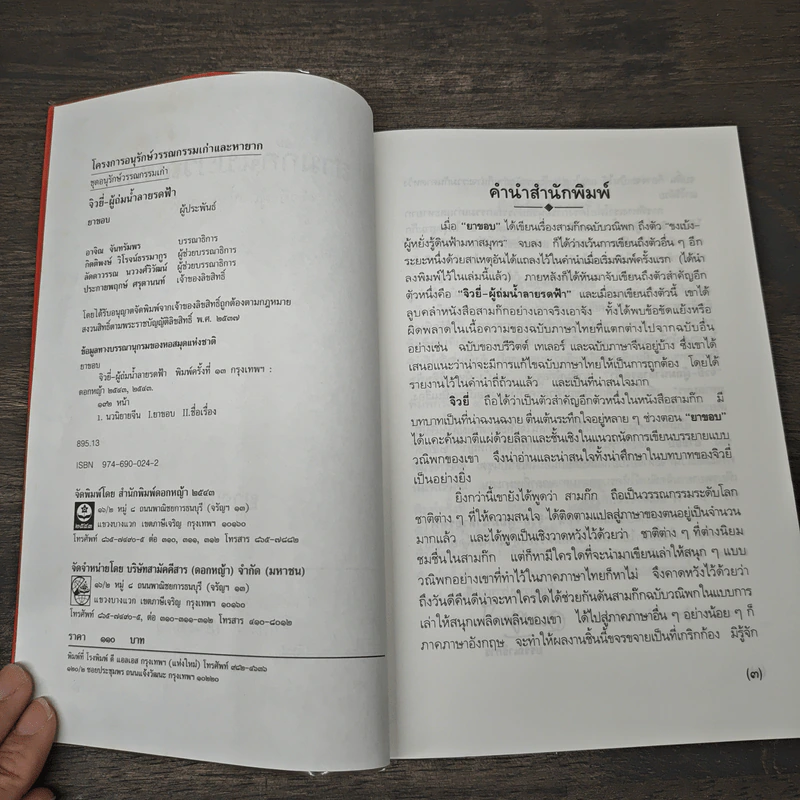 โครงการอนุรักษ์วรรณกรรมเก่าและหายาก
ชุดอนุรักษ์วรรณกรรมเก่า
จิวยี่-ผู้ถ่มน้ำลายรดฟ้า
ยาขอบ ผู้ประพันธ์
อาจิณ จันทรัมพร บรรณาธิการ
กิตติพงษ์ วิโรจน์ธรรมากูร ผู้ช่วยบรรณาธิการ
ลัดดาวรรณ นววงศ์วิวัฒน์ ผู้ช่วยบรรณาธิการ
ประกายพฤกษ์ ศรุตานนท์ เจ้าของลิขสิทธิ์
โดยได้รับอนุญาตจัดพิมพ์จากเจ้าของลิขสิทธิ์ถูกต้องตามกฎหมาย
สงวนสิทธิ์ตามพระราชบัญญัติลิขสิทธิ์ พ.ศ. ๒๕๓๗
ข้อมูลทางบรรณานุกรมของหอสมุดแห่งชาติ
ยาขอบ
จิวยี่-ผู้ถ่มน้ำลายรดฟ้า พิมพ์ครั้งที่ ๑๓ กรุงเทพฯ :
ดอกหญ้า ๒๕๔๓, ๒๕๔๓.
๑๙๒ หน้า
๑. นวนิยายจีน I.ยาขอบ II.ชื่อเรื่อง
895.13
ISBN 974-690-024-2
จัดพิมพ์โดย สำนักพิมพ์ดอกหญ้า ๒๕๔๓
๑๖/๒ หมู่ ๘ ถนนพาณิชยการธนบุรี (จรัญฯ ๑๓)
แขวงบางแวก เขตภาษีเจริญ กรุงเทพฯ ๑๐๑๖๐
๒๕๔๓
โทรศัพท์ ๘๖๕-๗๔๙๐-๕ ต่อ ๓๑๐, ๓๑๑, ๓๑๒ โทรสาร ๘๖๕-๗๘๘๒
จัดจำหน่ายโดย บริษัทสามัคคีสาร (ดอกหญ้า) จำกัด (มหาชน)
๑๖/๒ หมู่ ๘ ถนนพาณิชยการธนบุรี (จรัญฯ ๑๓)
แขวงบางแวก เขตภาษีเจริญ กรุงเทพฯ ๑๐๑๖๐
โทรศัพท์ ๘๖๕-๗๔๙๐-๕, ต่อ ๓๑๐-๓๑๑-๓๑๒ โทรสาร ๔๑๐-๘๐๑๒
ราคา ๑๑๐ บาท
พิมพ์ที่ โรงพิมพ์ ดี แอลเอส กรุงเทพฯ (แห่งใหม่) โทรศัพท์ ๙๘๒-๔๖๓๖
๑๒๐/๒ ซอยประชุมพร ถนนแจ้งวัฒนะ กรุงเทพฯ ๑๐๒๒๐
คำนำสำนักพิมพ์
เมื่อ “ยาขอบ” ได้เขียนเรื่องสามก๊กฉบับวณิพก ถึงตัว “ขงเบ้ง-
ผู้หยั่งรู้ดินฟ้ามหาสมุทร” จบลง ก็ได้ว่างเว้นการเขียนถึงตัวอื่น ๆ อีก
ระยะหนึ่งด้วยสาเหตุอันได้แถลงไว้ในคำนำเมื่อเริ่มพิมพ์ครั้งแรก (ได้นำ
ลงพิมพ์ไว้ในเล่มนี้แล้ว) ภายหลังก็ได้หันมาจับเขียนถึงตัวสำคัญอีก
ตัวหนึ่งคือ “จิวยี่-ผู้ถ่มน้ำลายรดฟ้า” และเมื่อมาเขียนถึงตัวนี้ เขาได้
ลูบคลำหนังสือสามก๊กอย่างเอาจริงเอาจัง ทั้งได้พบข้อขัดแย้งหรือ
ผิดพลาดในเนื้อความของฉบับภาษาไทยที่แตกต่างไปจากฉบับอื่น
อย่างเช่น ฉบับของบริวิตต์ เทเลอร์ และฉบับภาษาจีนอยู่บ้าง ซึ่งเขาได้
เสนอแนะว่าน่าจะมีการแก้ไขฉบับภาษาไทยให้เป็นการถูกต้อง โดยได้
รายงานไว้ในคำนำถี่ถ้วนแล้ว และเป็นที่น่าสนใจมาก
จิวยี่ ถือได้ว่าเป็นตัวสำคัญอีกตัวหนึ่งในหนังสือสามก๊ก มี
บทบาทเป็นที่น่าฉงนฉงาย ตื่นเต้นระทึกใจอยู่หลาย ๆ ช่วงตอน “ยาขอบ”
ได้แคะค้นมาตีแผ่ด้วยลีลาและชั้นเชิงในแนวถนัดการเขียนบรรยายแบบ
วณิพกของเขา จึงน่าอ่านและน่าสนใจทั้งน่าศึกษาในบทบาทของจิวยี่
เป็นอย่างยิ่ง
ยิ่งกว่านี้เขายังได้พูดว่า สามก๊ก ถือเป็นวรรณกรรมระดับโลก
ชาติต่าง ๆ ที่ให้ความสนใจ ได้ติดตามแปลสู่ภาษาของตนอยู่เป็นจำนวน
มากแล้ว และได้พูดเป็นเชิงวาดหวังไว้ด้วยว่า ชาติต่าง ๆ ที่ต่างนิยม
ชมชื่นในสามก๊ก แต่ก็หามีใครใดที่จะนำมาเขียนเล่าให้สนุก ๆ แบบ
วณิพกอย่างเขาที่ทำไว้ในภาคภาษาไทยก็หาไม่ จึงคาดหวังไว้ด้วยว่า
ถึงวันดีคืนดีน่าจะหาใครใดได้ช่วยกันดันสามก๊กฉบับวณิพกในแบบการ
เล่าให้สนุกเพลิดเพลินของเขา ได้ไปสู่ภาคภาษาอื่น ๆ อย่างน้อย ๆ ก็
ภาคภาษาอังกฤษ จะทำให้ผลงานชิ้นนี้ขจรขจายเป็นที่เกริกก้อง มีรู้จัก
(๓)